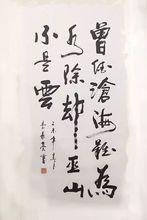 曾經滄海難為
水除却巫山
不是雲